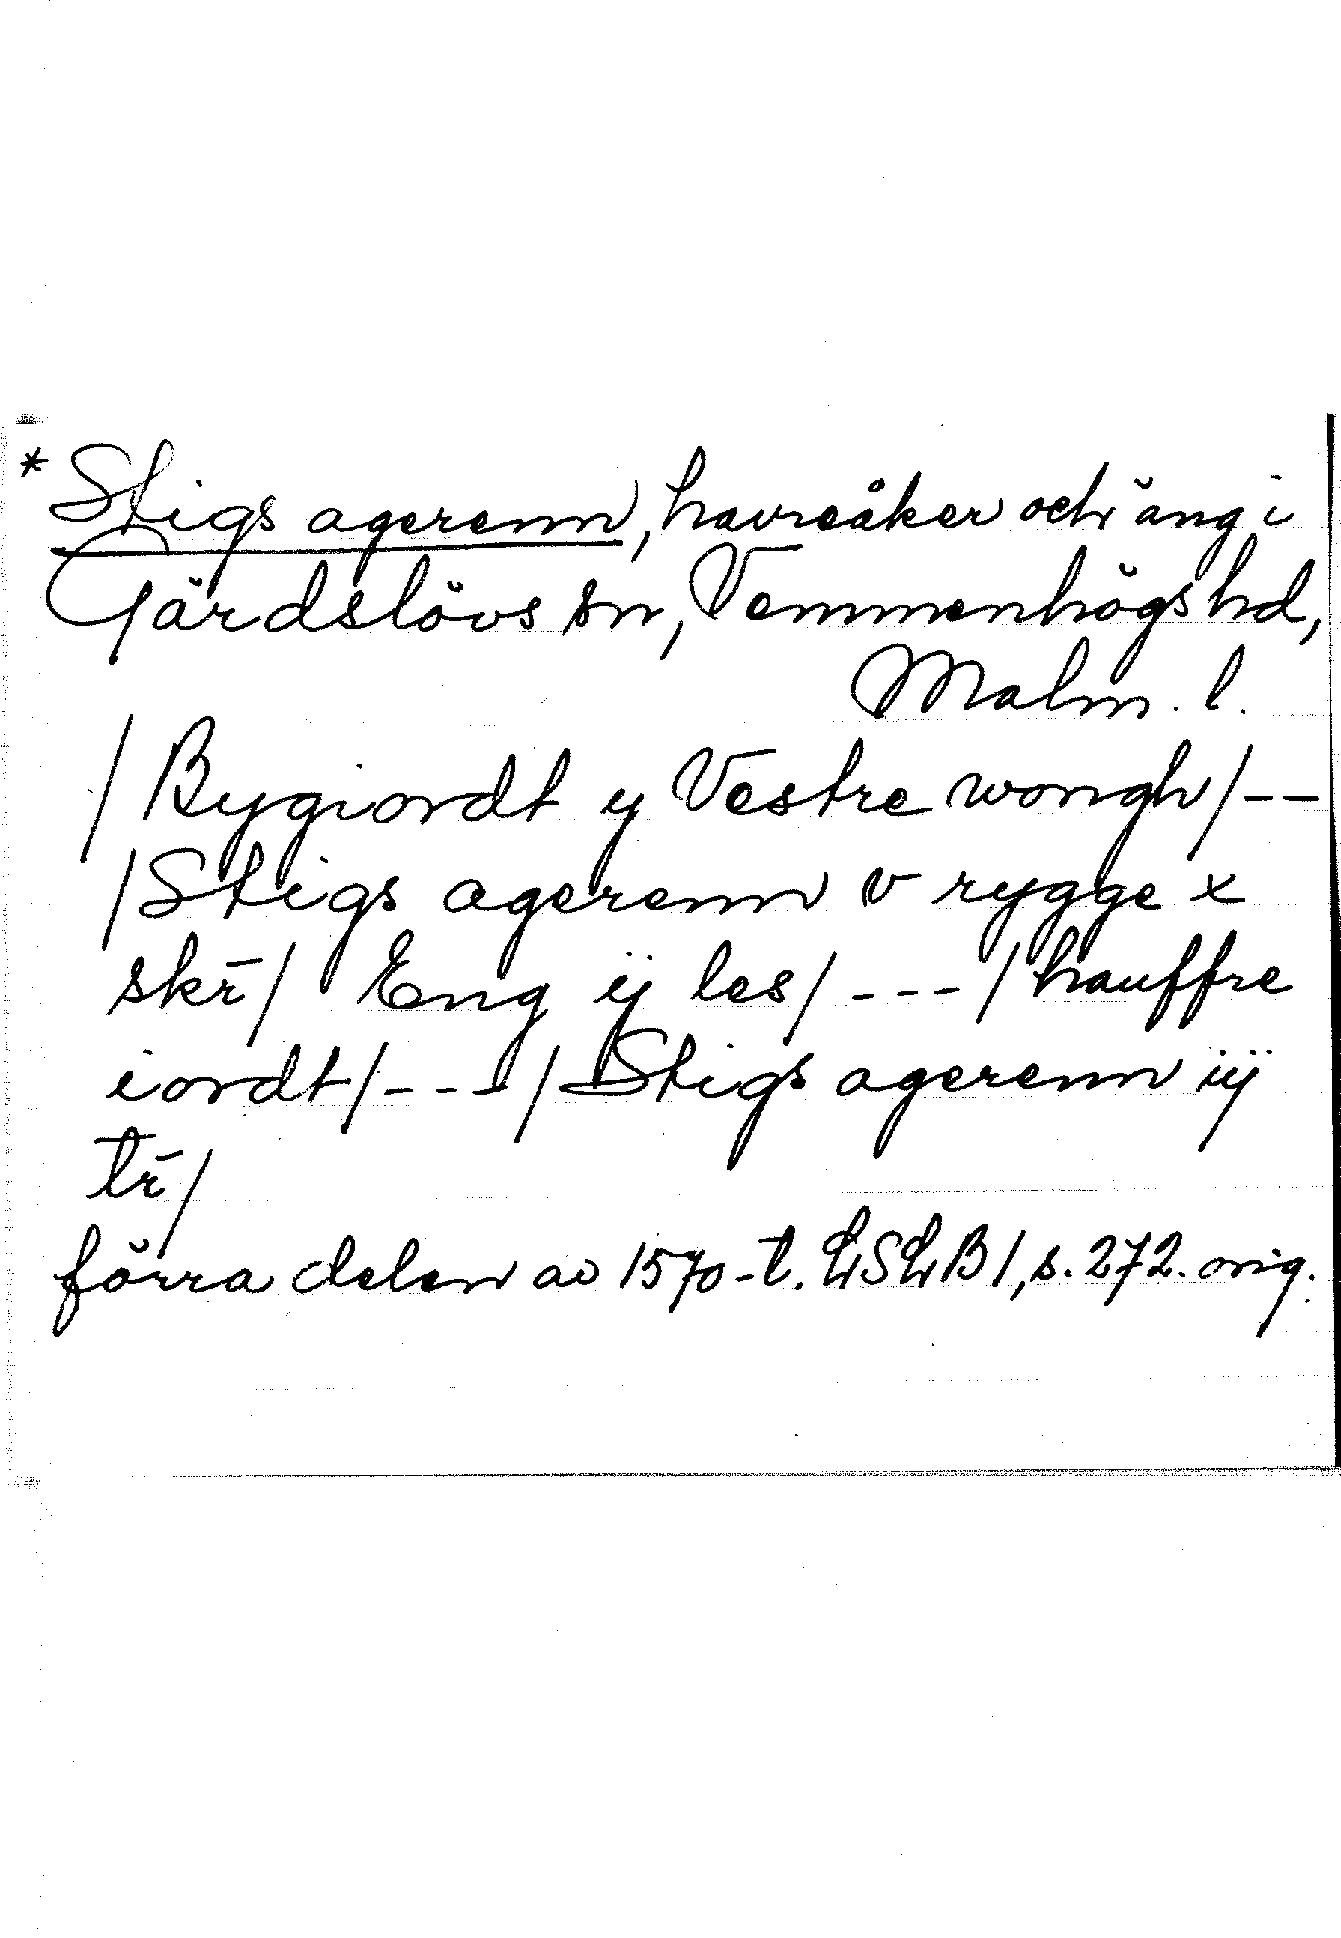 * Stigs agerenn, havreåker och äng i
Gärdslövs sn, Vemmenhögs hd,
Malm. l.
/ Bygiordt y Vestre wongh / --
/ Stigs agerenn v rygge x
skr̄ / Eng ij les / --- / hauffre
iordt / --- / Stigs agerenn iij
tr̄ /
förra delen av 1570-t. LSLB 1, s. 272. orig.